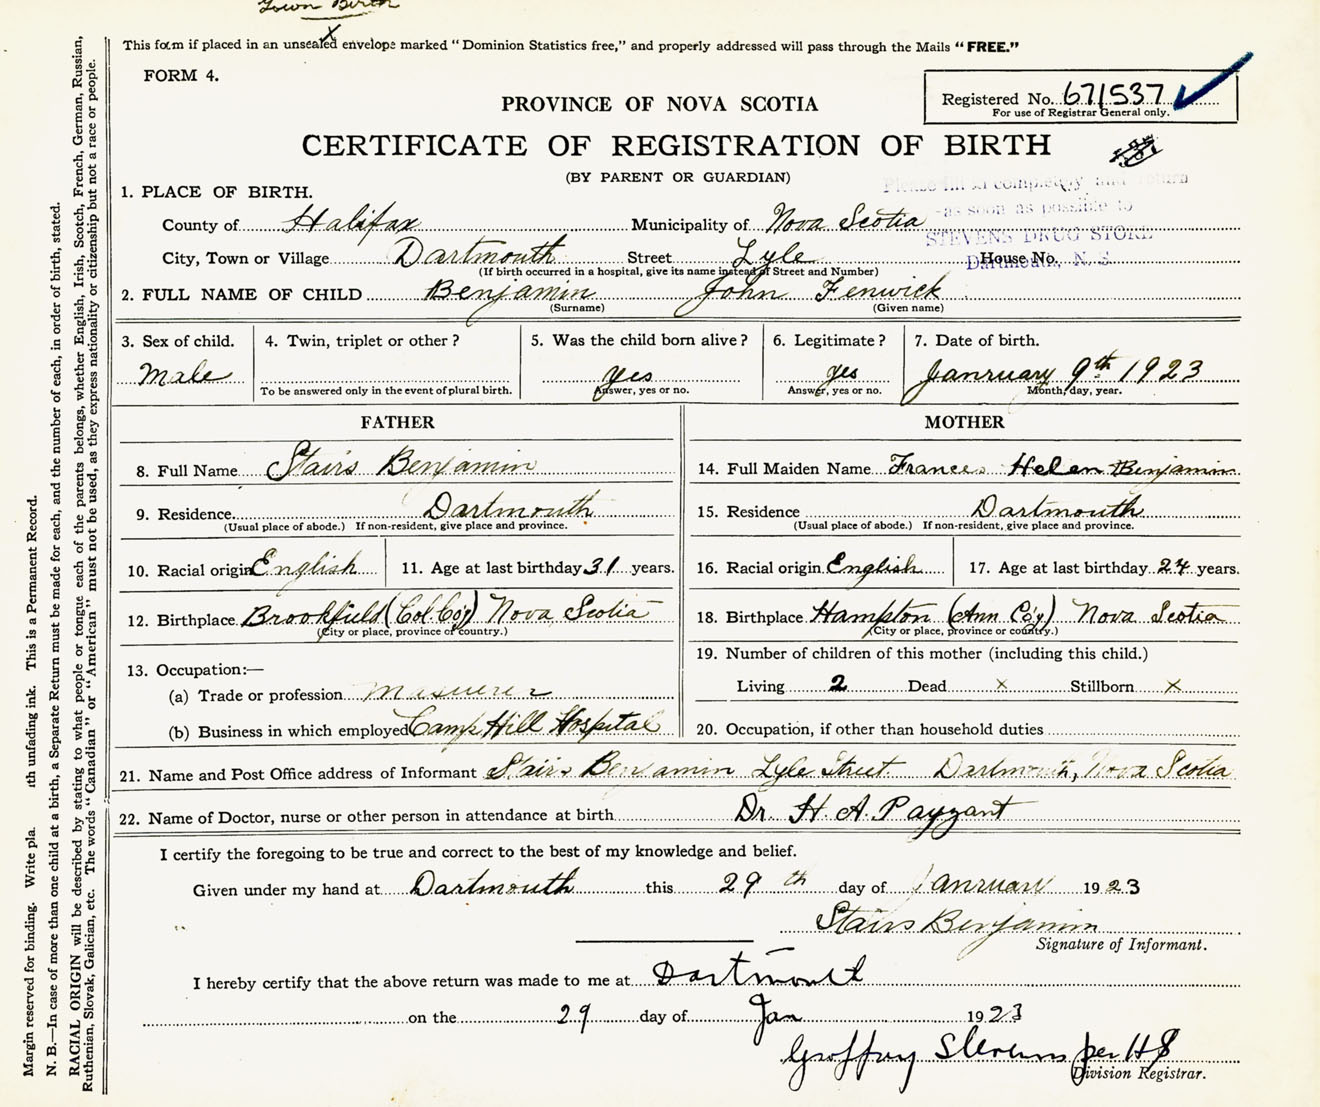 Town Birth
This form if placed in an unsealed envelope marked "Dominion Statistics free," and properly addressed will pass through the Mails "FREE."
FORM 4.
Registered No. 671537
For use of Registrar General only.
PROVINCE OF NOVA SCOTIA
CERTIFICATE OF REGISTRATION OF BIRTH
(BY PARENT OR GUARDIAN)
Please fill in completely and return
as soon as possible to
STEVENS DRUG STORE
Dartmouth, N. S.
1. PLACE OF BIRTH.
County of Halifax Municipality of Nova Scotia
City, Town or Village Dartmouth Street Lyle House No.
(If birth occurred in a hospital, give its name instead of Street and Number)
2. FULL NAME OF CHILD Benjamin John Fenwick
(Surname) (Given name)
3. Sex of child. Male
4. Twin, triplet or other?
To be answered only in the event of plural birth.
5. Was the child born alive? yes
Answer, yes or no.
6. Legitimate? yes
Answer, yes or no.
7. Date of birth. Janruary 9th 1923
Month, day, year.
FATHER
8. Full Name Stairs Benjamin
9. Residence Dartmouth
(Usual place of abode.) If non-resident, give place and province.
10. Racial origin English 11. Age at last birthday 31 years.
12. Birthplace Brookfield (Col. Co'y) Nova Scotia
(City or place, province or country.)
13. Occupation:—
(a) Trade or profession
(b) Business in which employed Camp Hill Hospital
MOTHER
14. Full Maiden Name Frances Helen Benjamin
15. Residence Dartmouth
(Usual place of abode.) If non-resident, give place and province.
16. Racial origin English 17. Age at last birthday 24 years.
18. Birthplace Hampton (Ann Co'y) Nova Scotia
(City or place, province or country.)
19. Number of children of this mother (including this child.)
Living 2 Dead x Stillborn x
20. Occupation, if other than household duties
21. Name and Post Office address of Informant Stairs Benjamin Lyle Street Dartmouth, Nova Scotia
22. Name of Doctor, nurse or other person in attendance at birth Dr. H. A. Payzant
I certify the foregoing to be true and correct to the best of my knowledge and belief.
Given under my hand at Dartmouth this 29th day of Janruary 1923
Stairs Benjamin
Signature of Informant.
I hereby certify that the above return was made to me at Dartmouth
on the 29 day of Jan 1923
Geoffrey Stevens per HS
Division Registrar.
Margin reserved for binding. Write pla ith unfading ink. This is a Permanent Record.
N. B.—In case of more than one child at a birth, a Separate Return must be made for each, and the number of each, in order of birth, stated.
RACIAL ORIGIN will be described by stating to what people or tongue each of the parents belongs, whether English, Irish, Scotch, French, German, Russian,
Ruthenian, Slovak, Galician, etc. The words "Canadian" or "American" must not be used, as they express nationality or citizenship but not a race or people.